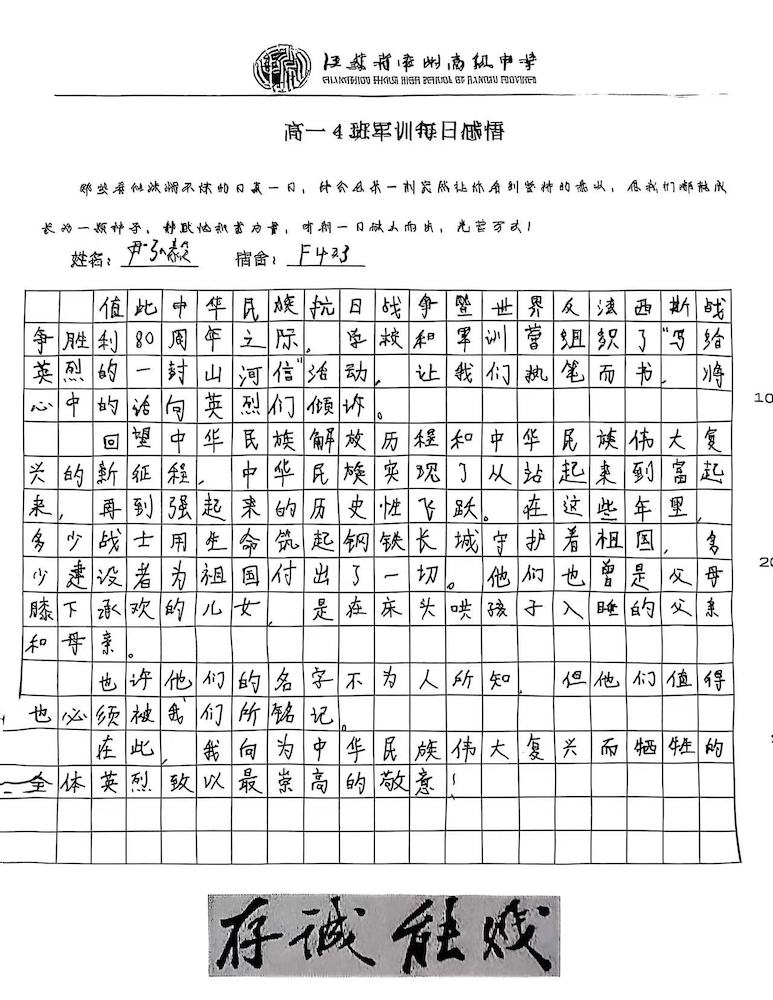 江苏省常州高级中学
高一4班军训每日感悟
那些看似波澜不惊的日复一日，终会在某一刻突然让你看到坚持的意义，愿我们都能成
长为一颗种子，静默地积蓄力量，待那一日破土而出，光芒万丈！
姓名：尹弘毅 宿舍：F423
值此中华民族抗日战争暨世界反法西斯战
争胜利80周年之际，学校和军训营组织了“写给
英烈的一封山河信”活动，让我们执笔而书，将
心中的话向英烈们倾诉。
10
回望中华民族解放历程和中华民族伟大复
兴的新征程，中华民族实现了从站起来到富起
来，再到强起来的历史性飞跃。在这些年里，
多少战士用生命筑起钢铁长城守护着祖国，多
少建设者为祖国付出了一切。他们也曾是父母
20
膝下承欢的儿女，是在床头哄孩子入睡的父亲
和母亲。
也许他们的名字不为人所知，但他们值得
也必须被我们所铭记。
在此，我向为中华民族伟大复兴而牺牲的
全体英烈致以最崇高的敬意！
存诚能贱